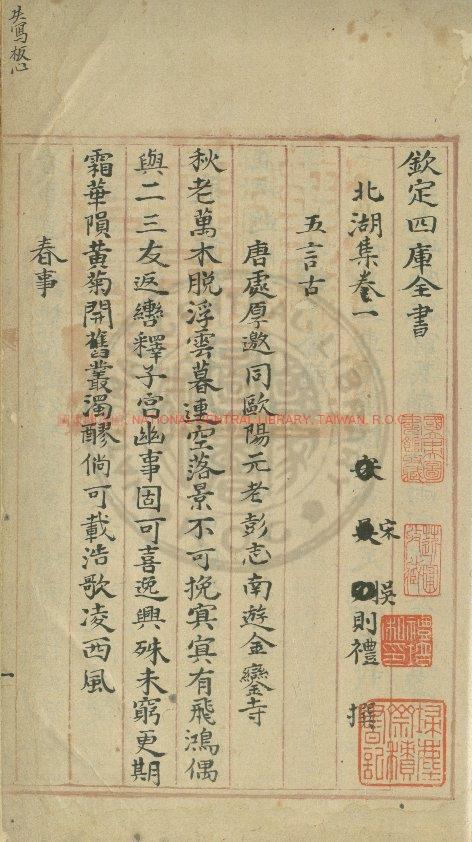 失寫板心
欽定四庫全書
北湖集卷一
宋 吳則禮 撰
五言古
唐處厚邀同歐陽元老彭志南遊金鑾寺
秋老萬木脫浮雲暮連空落景不可挽寞寞有飛鴻偶
與二三友返轡釋子宮幽事固可喜逸興殊未窮更期
霜華隕黃菊開舊叢濁醪倘可載浩歌凌西風
春事
一
國家圖書館 NATIONAL CENTRAL LIBRARY, TAIWAN, R.O.C